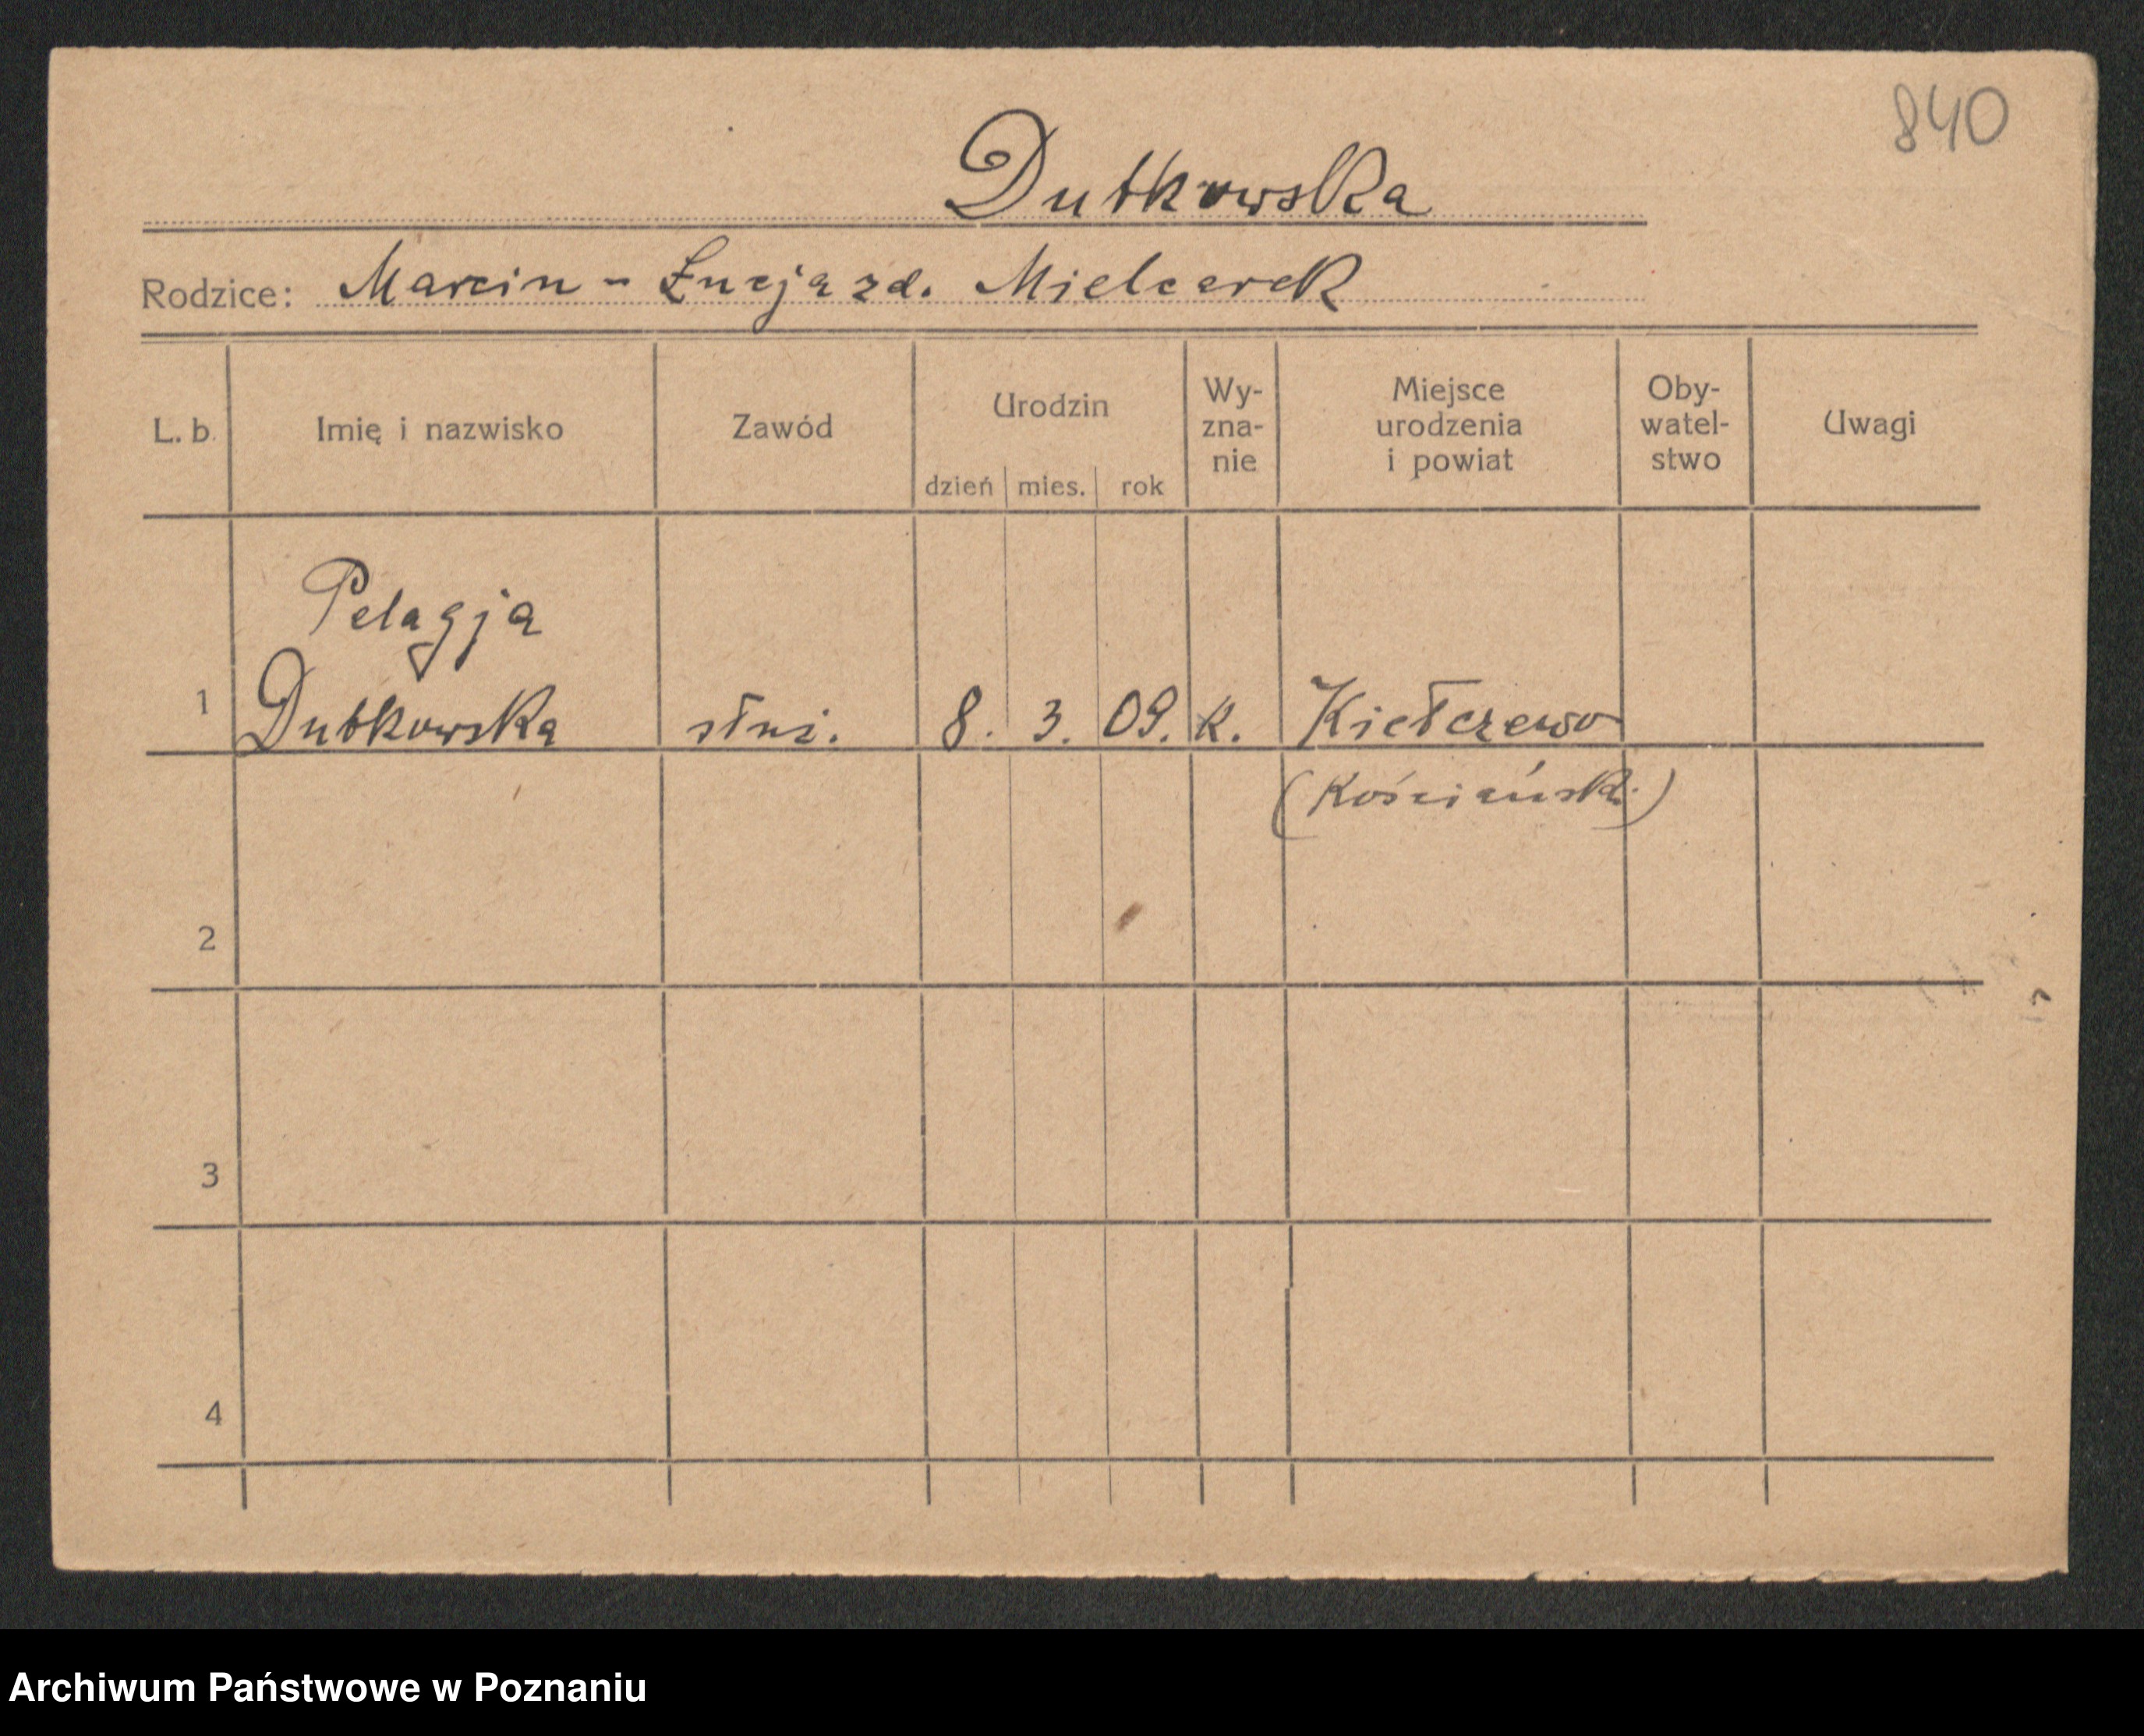 840
Dutkowska
Rodzice: Marcin - Łucja zd. Mielcarek
L. b. Imię i nazwisko Zawód Urodzin dzień mies. rok Wy- zna- nie Miejsce urodzenia i powiat Oby- watel- stwo Uwagi
Pelagja
1 Dutkowska służ. 8. 3. 09. k. Kiełczewo
(Kościański)
2
3
4
Archiwum Państwowe w Poznaniu